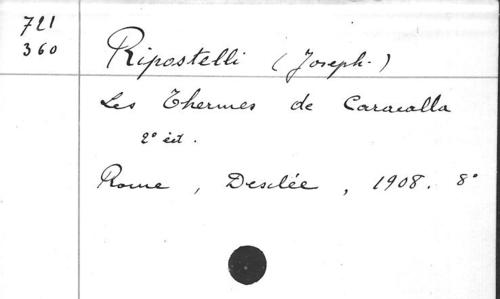 721
360
Ripostelli (Joseph.)
Les Thermes de Caracalla
2º éd.
Rome, Desclée, 1908. 8º